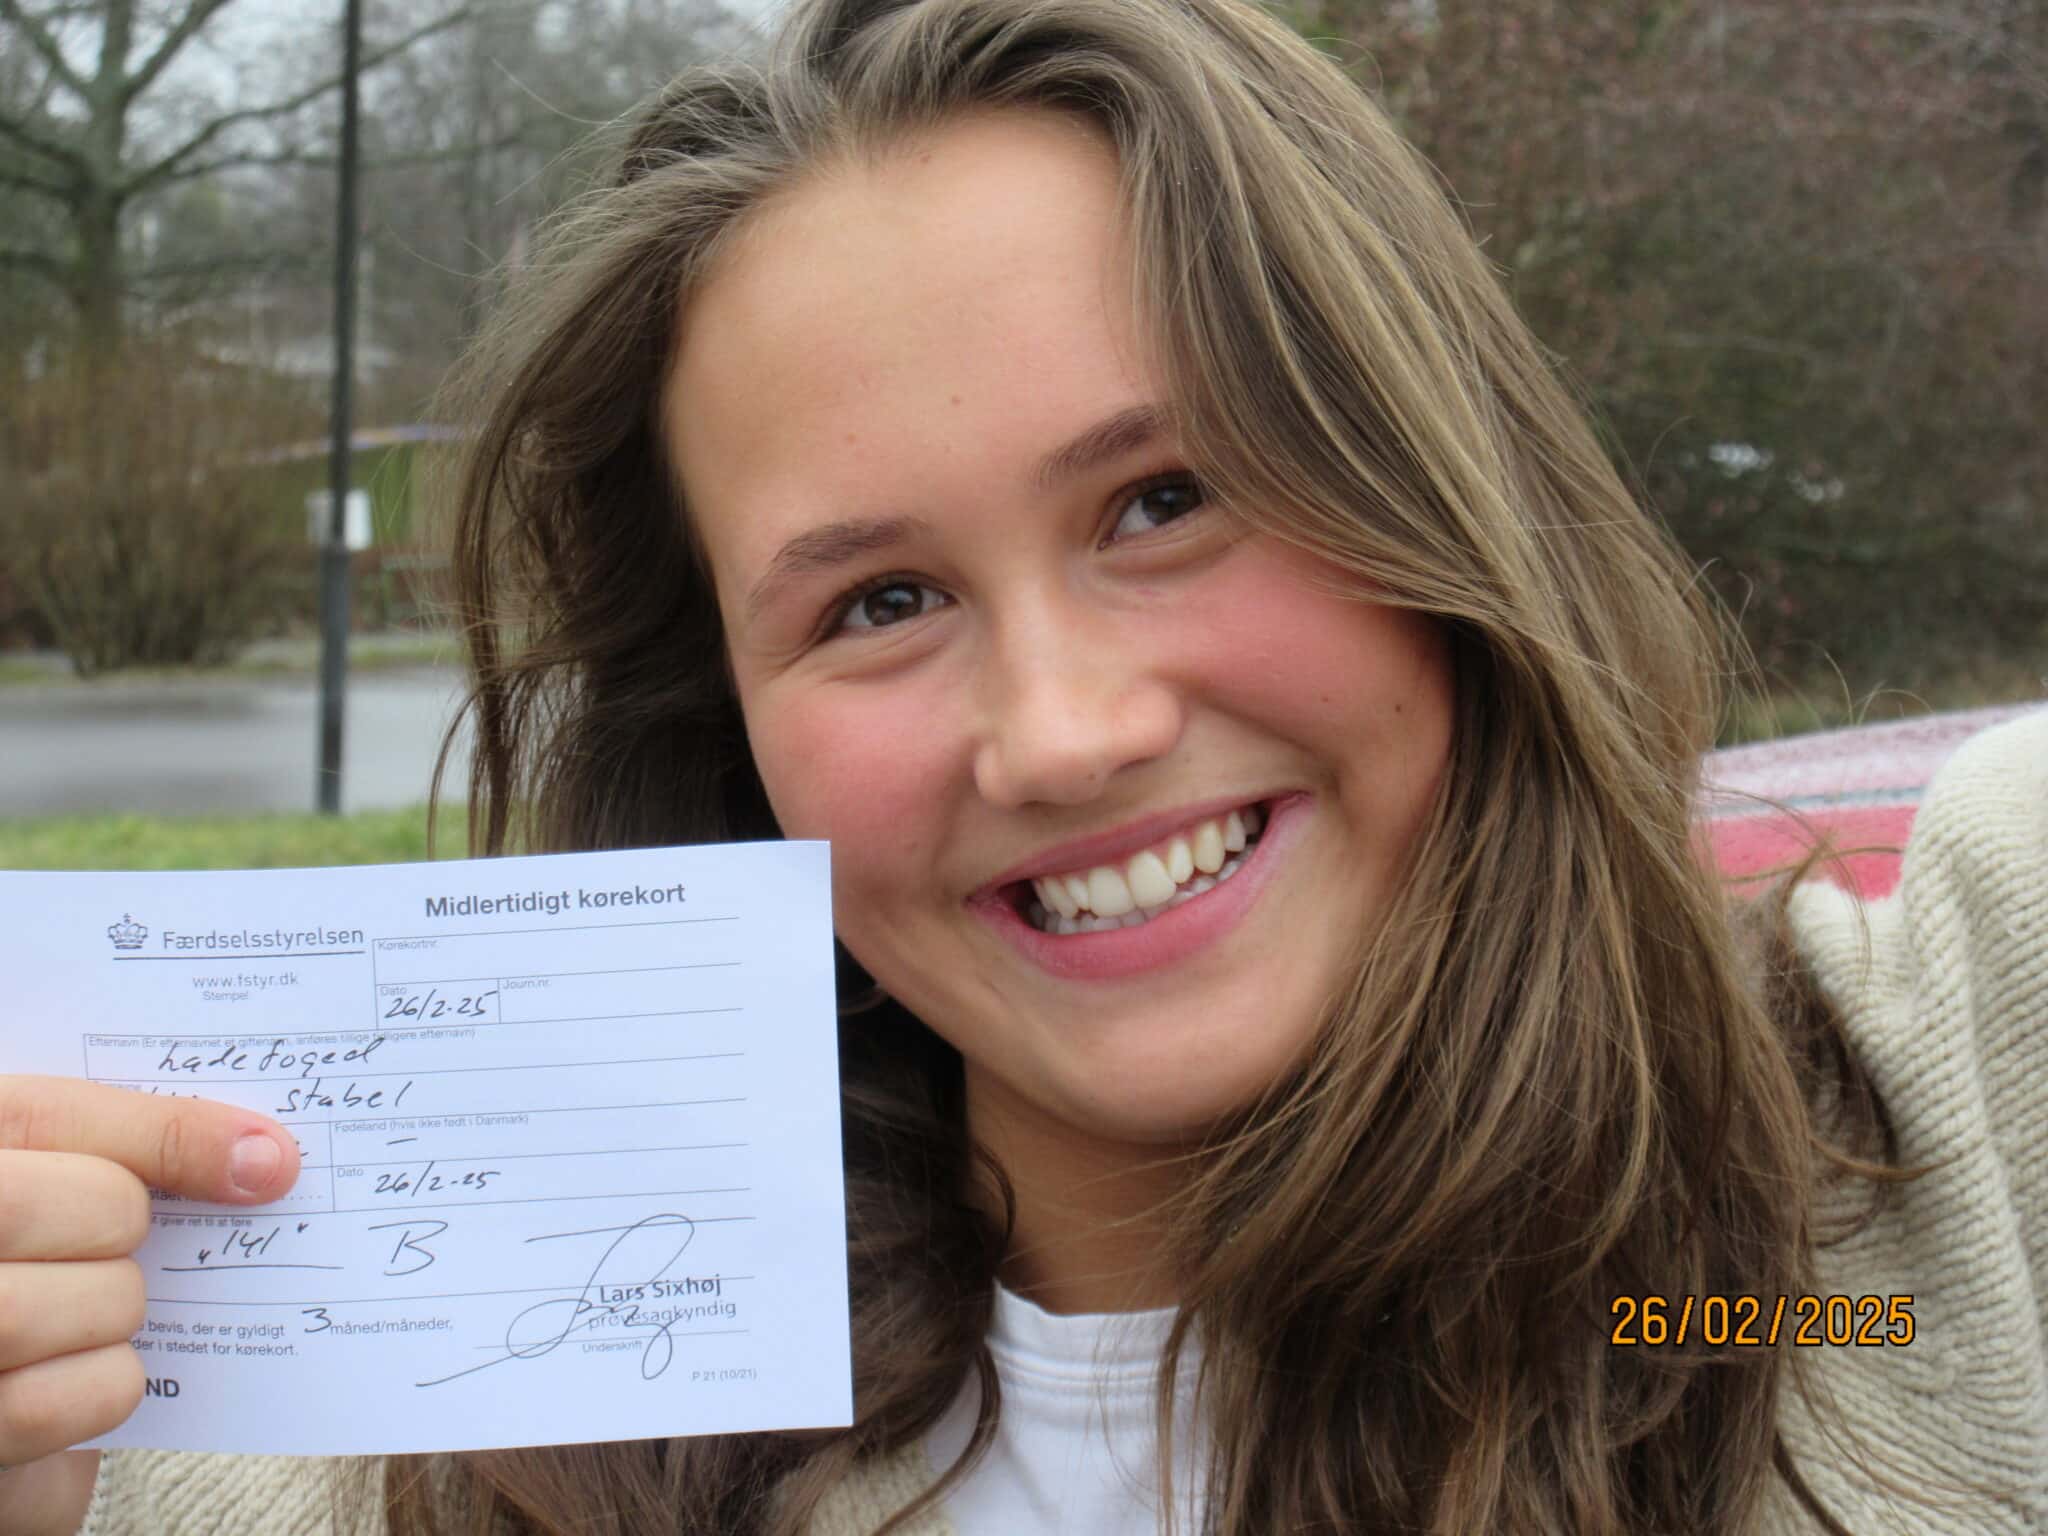 Midlertidigt kørekort
Færdselsstyrelsen
www.fstyr.dk
Stempel
Kørekortnr.
Dato
26/2-25
Journ.nr.
Efternavn (Er efternavnet et giftenavn, anføres tillige tidligere efternavn)
Ladefoged
Stabel
Fødeland (hvis ikke født i Danmark)
—
Dato
26/2-25
t giver ret til at føre
"141" B
Lars Sixhøj
prøvesagkyndig
bevis, der er gyldigt 3 måned/måneder,
der i stedet for kørekort.
Underskrift
ND
P 21 (10/21)
26/02/2025